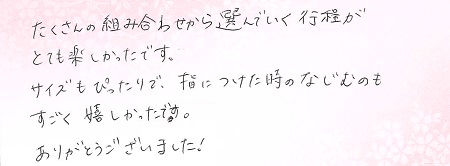 たくさんの組み合わせから選んでいく行程が
とても楽しかったです。
サイズもぴったりで、指につけた時のなじむのも
すごく嬉しかったです。
ありがとうございました!